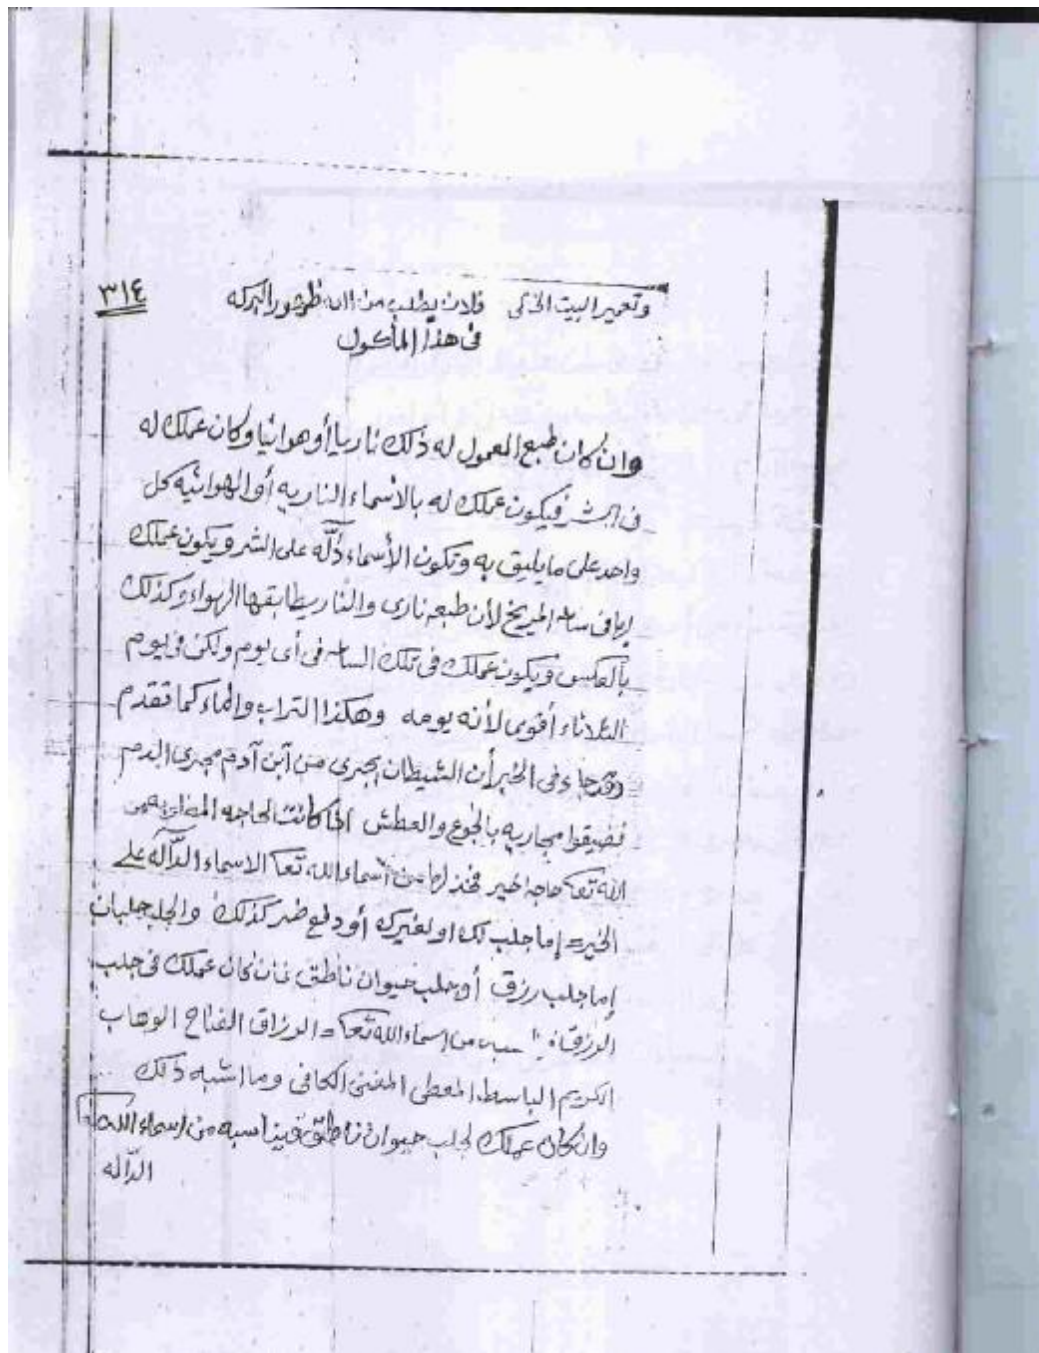 ٣١٤
وتعمير البيت الخالى فلان يطلب من الله ظهور البركه
فى هذا المأكول
وان كان طبع المعمول له ذلك ناريا أو هوائيا وكان عملك له
فى الشر فيكون عملك له بالاسماء الناريه أو الهوائيه كل
واحد على ما يليق به وتكون الأسماء دآلَّه على الشر ويكون عملك
لها فى ساعه المريخ لأن طبعه نارى والنار يطابقها الهواء وكذلك
بالعكس ويكون عملك فى تلك الساعه فى أى يوم ولكن فى يوم
الثلاثاء أقوى لأنه يومه وهكذا التراب والماء كما تقدم
وقد جاء فى الخبر أن الشيطان يجرى من آبن آدم مجرى الدم
فضيقوا مجاريه بالجوع والعطش اذا كانت الحاجه من
الله تعا حاجة الخير فخذ لها من أسماء الله تعا الاسماء الدَّآله على
الخير = إما جلب لك او لغيرك أو دفع ضر كذلك والجلب جلبان
إما جلب رزق أو جلب حيوان ناطق فان كان عملك فى جلب
الرزق من اسماء الله تعا = الرزاق الفتاح الوهاب
الكريم الباسط المعطى المغنى الكافى وما اشبه ذلك
وان كان عملك لجلب حيوان ناطق فيناسبه من اسماء الله تعا
الدَّاله